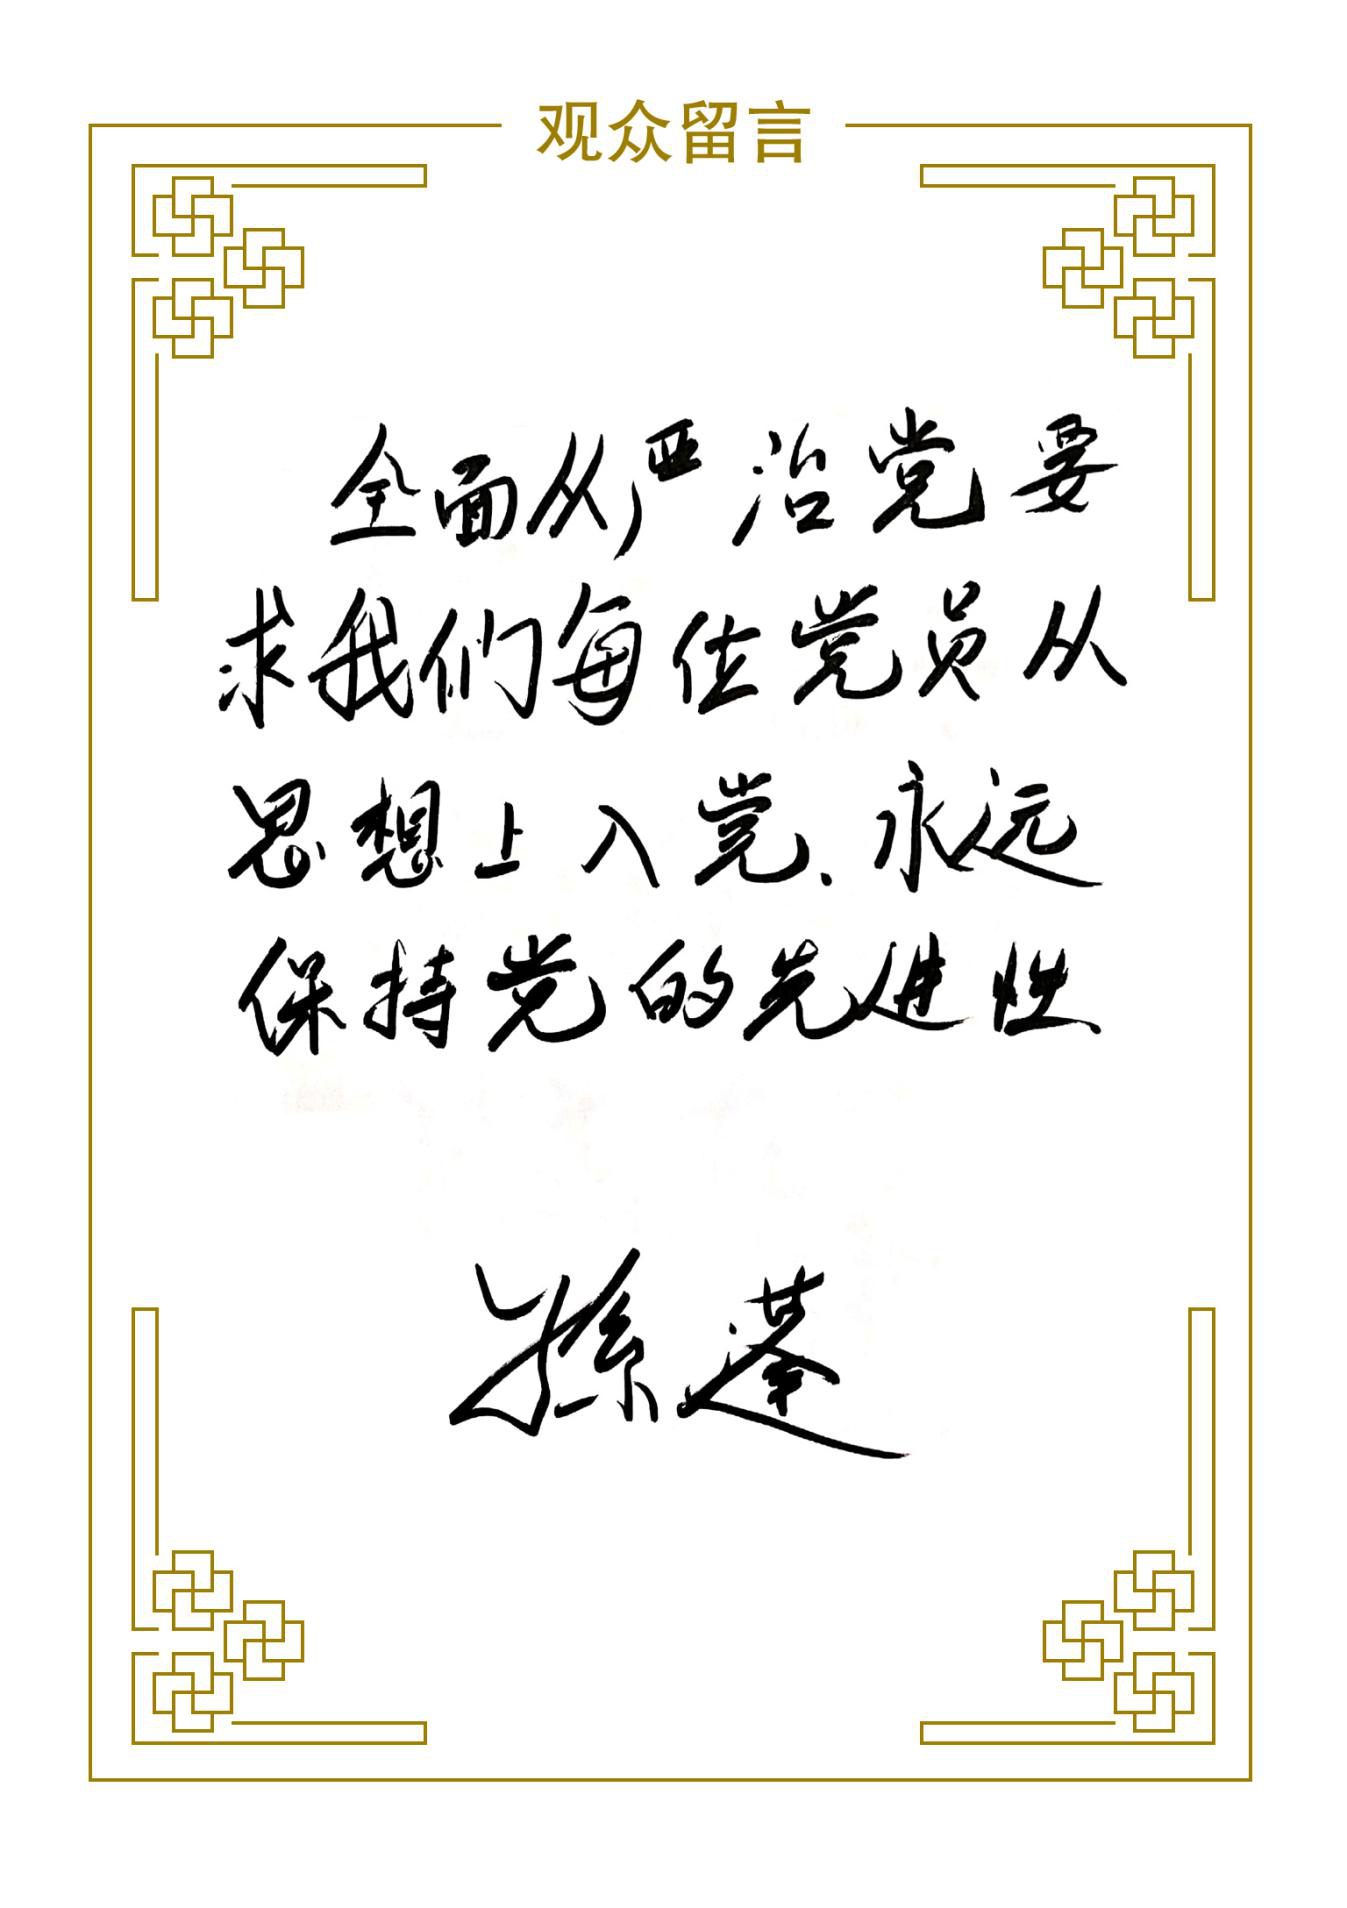 观众留言
全面从严治党要
求我们每位党员从
思想上入党、永远
保持党的先进性
孙蓬